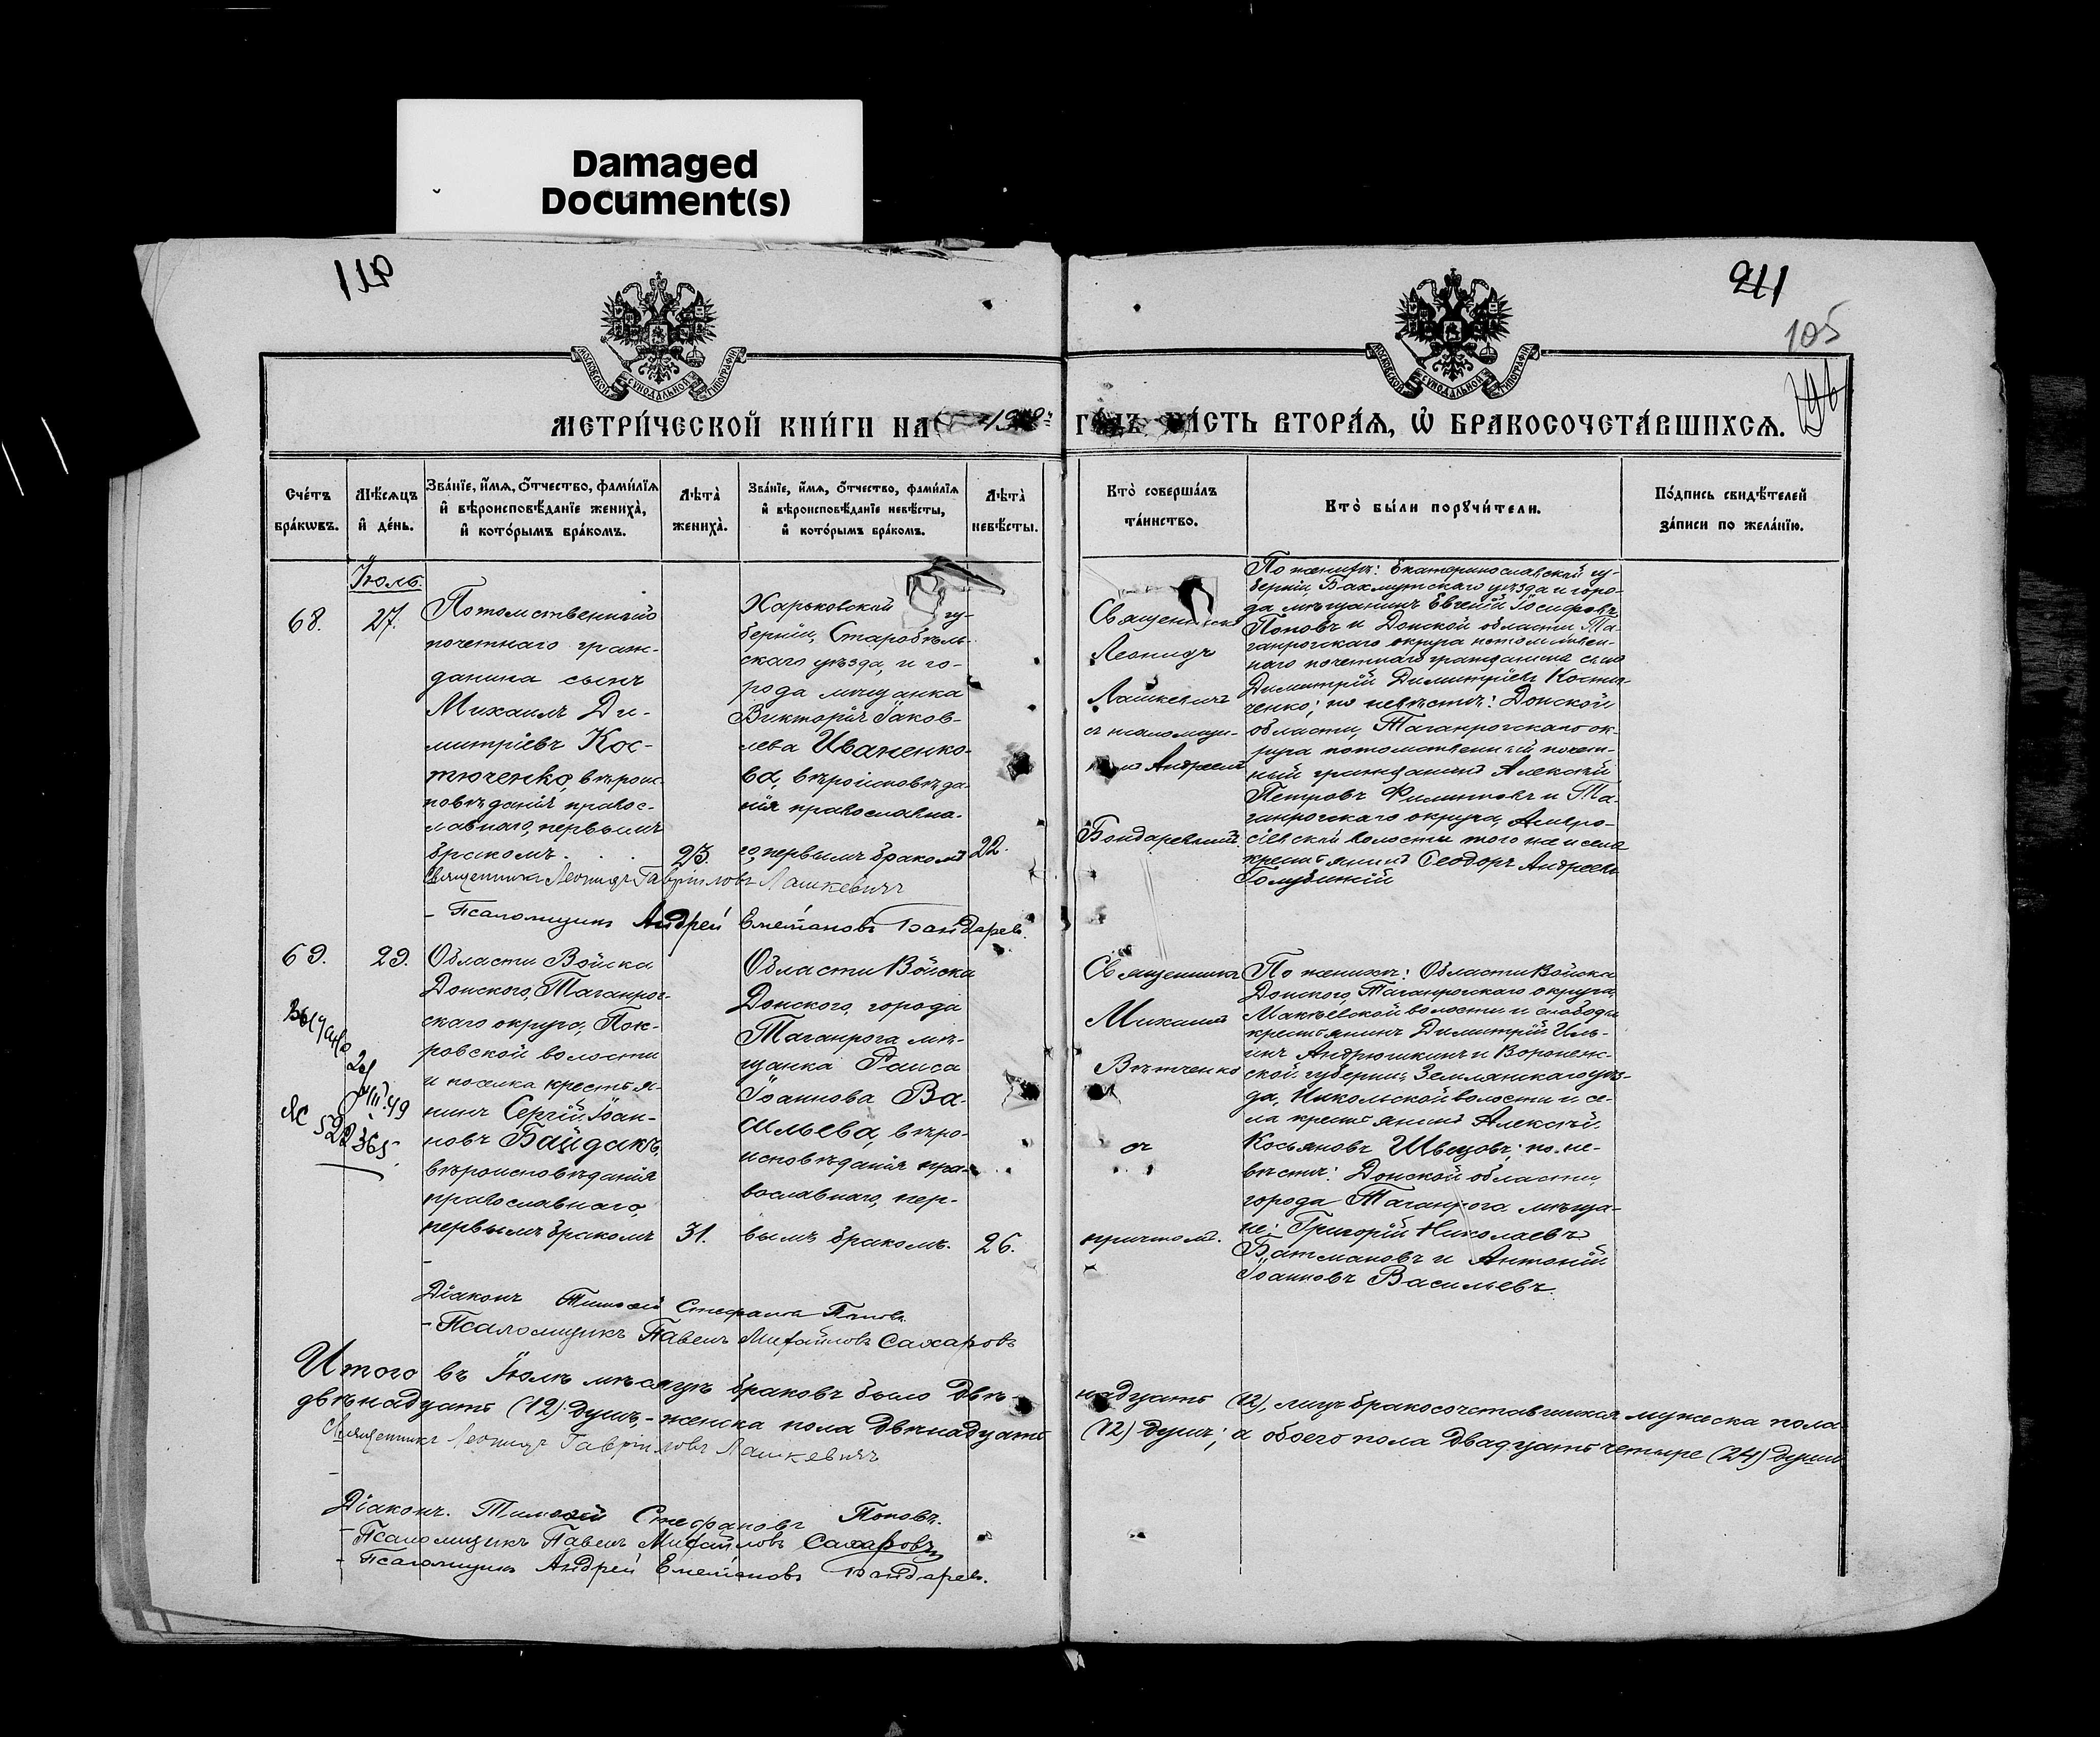 Damaged
Document(s)
110
211
105
МОСКОВСКОЙ СѴНОДАЛЬНОЙ ТИПОГРАФІИ
МОСКОВСКОЙ СѴНОДАЛЬНОЙ ТИПОГРАФІИ
МЕТРИ́ЧЕСКОЙ КНИ́ГИ НА ГО́ДЪ ЧА́СТЬ ВТОРА́Ѧ, Ѽ БРАКОСОЧЕТА́ВШИХСѦ.
Сче́тъ
бра́кѡвъ.
Мѣ́сѧцъ
и҆ де́нь.
Зва́нїе, и҆́мѧ, ѻ҆́тчество, фами́лїѧ
и҆ вѣроисповѣ́данїе жениха̀,
и҆ кото́рымъ бра́комъ.
Лѣта̀
жениха̀.
Зва́нїе, и҆́мѧ, ѻ҆́тчество, фами́лїѧ
и҆ вѣроисповѣ́данїе невѣ́сты,
и҆ кото́рымъ бра́комъ.
Лѣта̀
невѣ́сты.
Кто̀ соверша́лъ
та́инство.
Кто̀ бы́ли порꙋчи́тели.
По́дпись свидѣ́телей
за́писи по жела́нїю.
Іюль
68.
27.
Потомственнаго
почетнаго граж-
данина сынъ
Михаилъ Ди-
митріевъ Кос-
тюченко, вѣроис-
повѣданія правос-
лавнаго, первымъ
бракомъ.
23.
Харьковской гу-
берніи, Старобѣль-
скаго уѣзда, и го-
рода мѣщанка
Викторія Іаков-
лева Иваненко-
ва, вѣроисповѣда-
нія православна-
го, первымъ бракомъ
22.
Священникъ
Леонидъ
Лашкевичъ
съ псаломщи-
комъ Андреемъ
Бондаревымъ.
По женихѣ: Екатеринославской гу-
берніи, Бахмутскаго уѣзда и горо-
да мѣщанинъ Евгеній Іосифовъ
Поповъ и Донской области Та-
ганрогскаго округа потомствен-
наго почетнаго гражданина сынъ
Димитрій Димитріевъ Костю-
ченко; по невѣстѣ: Донской
области, Таганрогскаго ок-
руга потомственный почет-
ный гражданинъ Алексѣй
Петровъ Филипповъ и Та-
ганрогскаго округа, Амвро-
сіевской волости того же села
крестьянинъ Ѳеодоръ Андреевъ
Голубицкій
Священникъ Леонидъ Гавріиловъ Лашкевичъ
- Псаломщикъ Андрей Емельяновъ Бондаревъ.
69.
29.
Области Войска
Донского, Таганрог-
скаго округа, Пок-
ровской волости
и поселка крестья-
нинъ Сергій Іоан-
новъ Байдакъ,
вѣроисповѣданія
православнаго,
первымъ бракомъ
31.
Области Войска
Донского, города
Таганрога мѣ-
щанка Раиса
Іоаннова Ва-
сильева, вѣро-
исповѣданія пра-
вославнаго, пер-
вымъ бракомъ.
26.
Священникъ
Михаилъ
Вѣтченко
съ
причтомъ.
По женихѣ: Области Войска
Донского, Таганрогскаго округа,
Макѣевской волости и слободы
крестьянинъ Димитрій Иль-
инъ Андрюшкинъ и Воронеж-
ской губерніи, Землянскаго уѣз-
да, Никольской волости и се-
ла крестьянинъ Алексѣй
Косьяновъ Швецовъ; по не-
вѣстѣ: Донской области,
города Таганрога мѣща-
не: Григорій Николаевъ
Батмановъ и Антоній
Іоанновъ Васильевъ.
Діаконъ Тимоѳей Стефановъ Поповъ.
- Псаломщикъ Павелъ Михайловъ Сахаровъ
Итого въ Іюлѣ мѣсяцѣ браковъ было двѣ-надцать (12), лицъ бракосочетавшихся мужеска пола
двѣнадцать (12) душъ,- женска пола двѣнадцать (12) душъ; а обоего пола двадцать четыре (24) души.
Священникъ Леонидъ Гавріиловъ Лашкевичъ
Діаконъ. Тимоѳей Стефановъ Поповъ.
- Псаломщикъ Павелъ Михайловъ Сахаровъ
- Псаломщикъ Андрей Емельяновъ Бондаревъ.